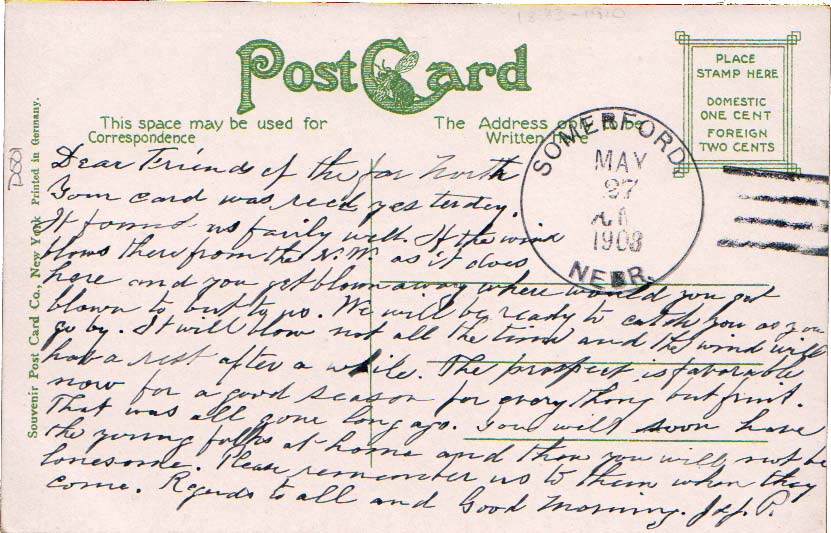 1883-1910
Post Card
This space may be used for
Correspondence
The Address only to be
Written Here
PLACE
STAMP HERE
DOMESTIC
ONE CENT
FOREIGN
TWO CENTS
SOMERFORD,
MAY
27
1908
NEBR.
Souvenir Post Card Co., New York Printed in Germany.
Dear Friends of the far North
Your card was recd yesterday.
It found us fairly well. If the wind
blows there from the N.W. as it does
here and you get blown away where would you get
blown to but to us. We will be ready to catch you as you
go by. It will blow not all the time and the wind will
have a rest after a while. The prospect is favorable
now for a good season for every thing but fruit.
That was all gone long ago. You will soon have
the young folks at home and then you will not be
lonesome. Please remember us to them when they
come. Regards to all and Good Morning. J. P.